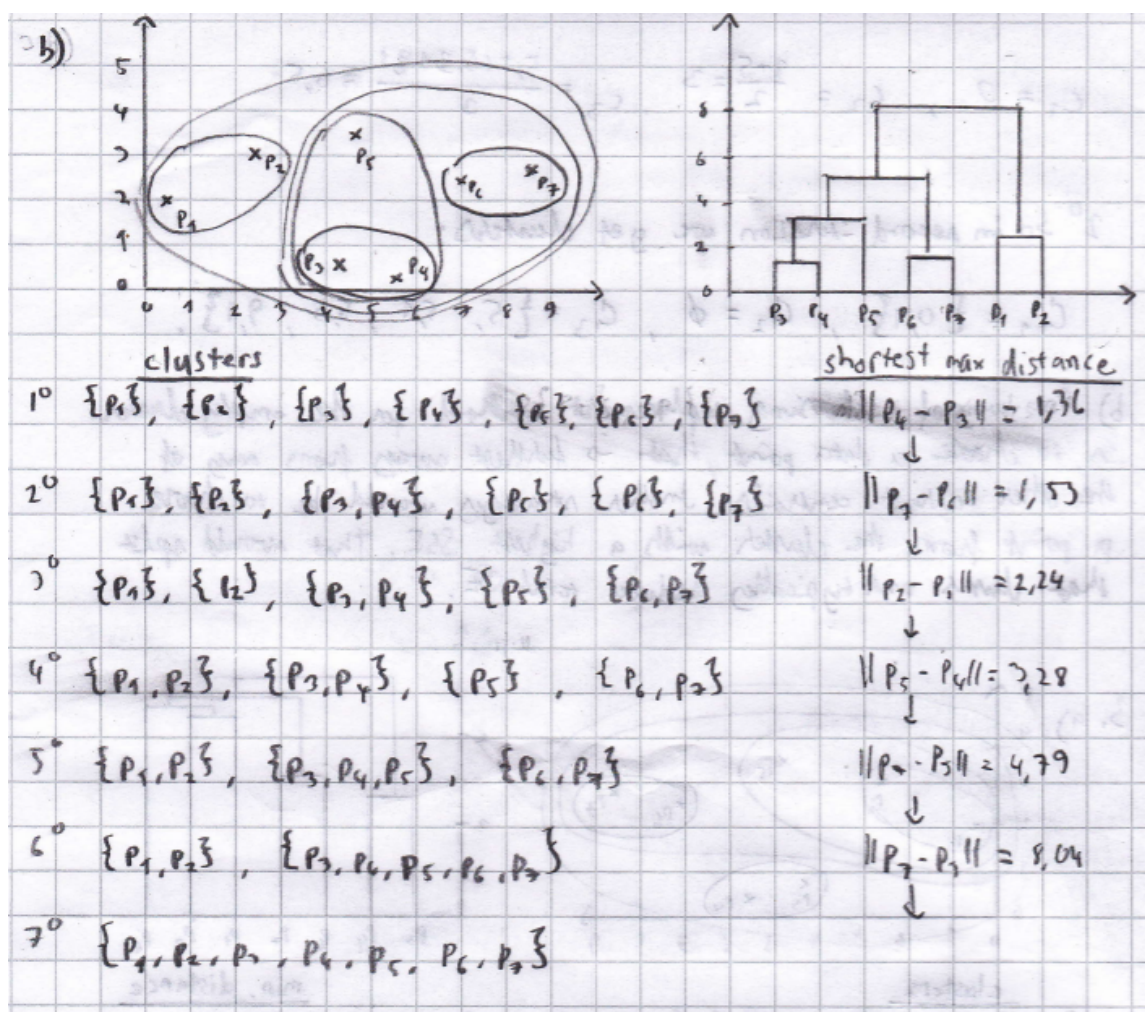 b)
5
4
3
2
1
0
0 1 2 3 4 5 6 7 8 9
p1
p2
p3
p4
p5
p6
p7
8
6
4
2
0
p3 p4 p5 p6 p7 p1 p2
clusters
shortest max distance
1° {p1}, {p2}, {p3}, {p4}, {p5}, {p6}, {p7} ||p4 - p3|| = 1,36
↓
2° {p1}, {p2}, {p3, p4}, {p5}, {p6}, {p7} ||p7 - p6|| = 1,53
↓
3° {p1}, {p2}, {p3, p4}, {p5}, {p6, p7} ||p2 - p1|| = 2,24
↓
4° {p1, p2}, {p3, p4}, {p5}, {p6, p7} ||p5 - p4|| = 3,28
↓
5° {p1, p2}, {p3, p4, p5}, {p6, p7} = 4,79
↓
6° {p1, p2}, {p3, p4, p5, p6, p7} = 8,04
↓
7° {p1, p2, p3, p4, p5, p6, p7}